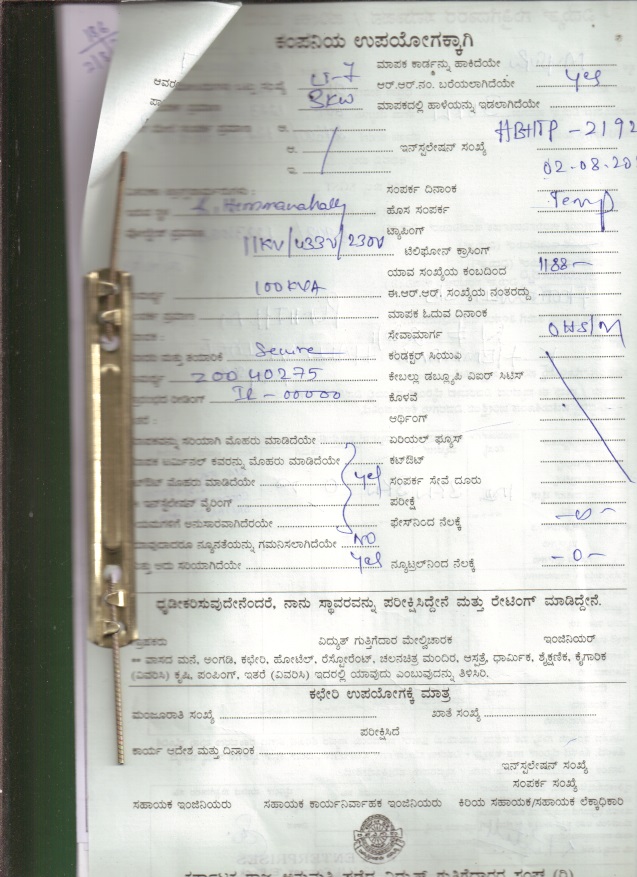 ಕಂಪನಿಯ ಉಪಯೋಗಕ್ಕಾಗಿ
ಮಾಪಕ ಕಾರ್ಡನ್ನು ಹಾಕಿದೆಯೇ
ಸಂಖ್ಯೆ LT-7 ಆರ್.ಆರ್.ನಂ. ಬರೆಯಲಾಗಿದೆಯೇ Yes
3KW ಮಾಪಕದಲ್ಲಿ ಹಾಳೆಯನ್ನು ಇಡಲಾಗಿದೆಯೇ
ಅ.
ಆ. ಇನ್‌ಸ್ಟಲೇಷನ್ ಸಂಖ್ಯೆ HBHTP-2192
ಇ. 02-08-20
ಸಂಪರ್ಕ ದಿನಾಂಕ
ಹೊಸ ಸಂಪರ್ಕ Temp
11KV/433V/230V ಟ್ಯಾಪಿಂಗ್
ಟೆಲಿಫೋನ್ ಕ್ರಾಸಿಂಗ್
ಯಾವ ಸಂಖ್ಯೆಯ ಕಂಬದಿಂದ 1188-
100KVA ಈ.ಆರ್.ಆರ್. ಸಂಖ್ಯೆಯ ನಂತರದ್ದು
ಮಾಪಕ ಓದುವ ದಿನಾಂಕ
ಸೇವಾಮಾರ್ಗ OHS/M
ಮತ್ತು ತಯಾರಿಕೆ Secure ಕಂಡಕ್ಟರ್ ಸಿಯುಪಿ
20040275 ಕೇಬಲ್ಲು ಡಬ್ಲ್ಯೂಪಿ ವಿಐರ್ ಸಿಟಿಸ್
ರೀಡಿಂಗ್ IR-00000 ಕೊಳವೆ
ಆರ್ಥಿಂಗ್
ಸರಿಯಾಗಿ ಮೊಹರು ಮಾಡಿದೆಯೇ ಏರಿಯಲ್ ಫ್ಯೂಸ್
ಟರ್ಮಿನಲ್ ಕವರನ್ನು ಮೊಹರು ಮಾಡಿದೆಯೇ ಕಟ್‌ಔಟ್
ಮೊಹರು ಮಾಡಿದೆಯೇ Yes ಸಂಪರ್ಕ ಸೇವೆ ದೂರು
ಇನ್‌ಸ್ಟಲೇಷನ್ ವೈರಿಂಗ್ ಪರೀಕ್ಷೆ
ಅನುಸಾರವಾಗಿದೆಯೇ ಫೇಸ್‌ನಿಂದ ನೆಲಕ್ಕೆ -0-
ನ್ಯೂನತೆಯನ್ನು ಗಮನಿಸಲಾಗಿದೆಯೇ NO
ಅದು ಸರಿಯಾಗಿದೆಯೇ Yes ನ್ಯೂಟ್ರಲ್‌ನಿಂದ ನೆಲಕ್ಕೆ -0-
ಧೃಡೀಕರಿಸುವುದೇನೆಂದರೆ, ನಾನು ಸ್ಥಾವರವನ್ನು ಪರೀಕ್ಷಿಸಿದ್ದೇನೆ ಮತ್ತು ರೇಟಿಂಗ್ ಮಾಡಿದ್ದೇನೆ.
ವಿದ್ಯುತ್ ಗುತ್ತಿಗೆದಾರ ಮೇಲ್ವಿಚಾರಕ ಇಂಜಿನಿಯರ್
** ವಾಸದ ಮನೆ, ಅಂಗಡಿ, ಕಛೇರಿ, ಹೋಟೆಲ್, ರೆಸ್ಟೋರೆಂಟ್, ಚಲನಚಿತ್ರ ಮಂದಿರ, ಆಸ್ಪತ್ರೆ, ಧಾರ್ಮಿಕ, ಶೈಕ್ಷಣಿಕ, ಕೈಗಾರಿಕ
(ವಿವರಿಸಿ) ಕೃಷಿ, ಪಂಪಿಂಗ್, ಇತರೆ (ವಿವರಿಸಿ) ಇದರಲ್ಲಿ ಯಾವುದು ಎಂಬುವುದನ್ನು ತಿಳಿಸಿರಿ.
ಕಛೇರಿ ಉಪಯೋಗಕ್ಕೆ ಮಾತ್ರ
ಮಂಜೂರಾತಿ ಸಂಖ್ಯೆ ಖಾತೆ ಸಂಖ್ಯೆ
ಪರೀಕ್ಷಿಸಿದೆ
ಕಾರ್ಯ ಆದೇಶ ಮತ್ತು ದಿನಾಂಕ
ಇನ್‌ಸ್ಟಲೇಷನ್ ಸಂಖ್ಯೆ
ಸಂಪರ್ಕ ಸಂಖ್ಯೆ
ಸಹಾಯಕ ಇಂಜಿನಿಯರು ಸಹಾಯಕ ಕಾರ್ಯನಿರ್ವಾಹಕ ಇಂಜಿನಿಯರು ಕಿರಿಯ ಸಹಾಯಕ/ಸಹಾಯಕ ಲೆಕ್ಕಾಧಿಕಾರಿ